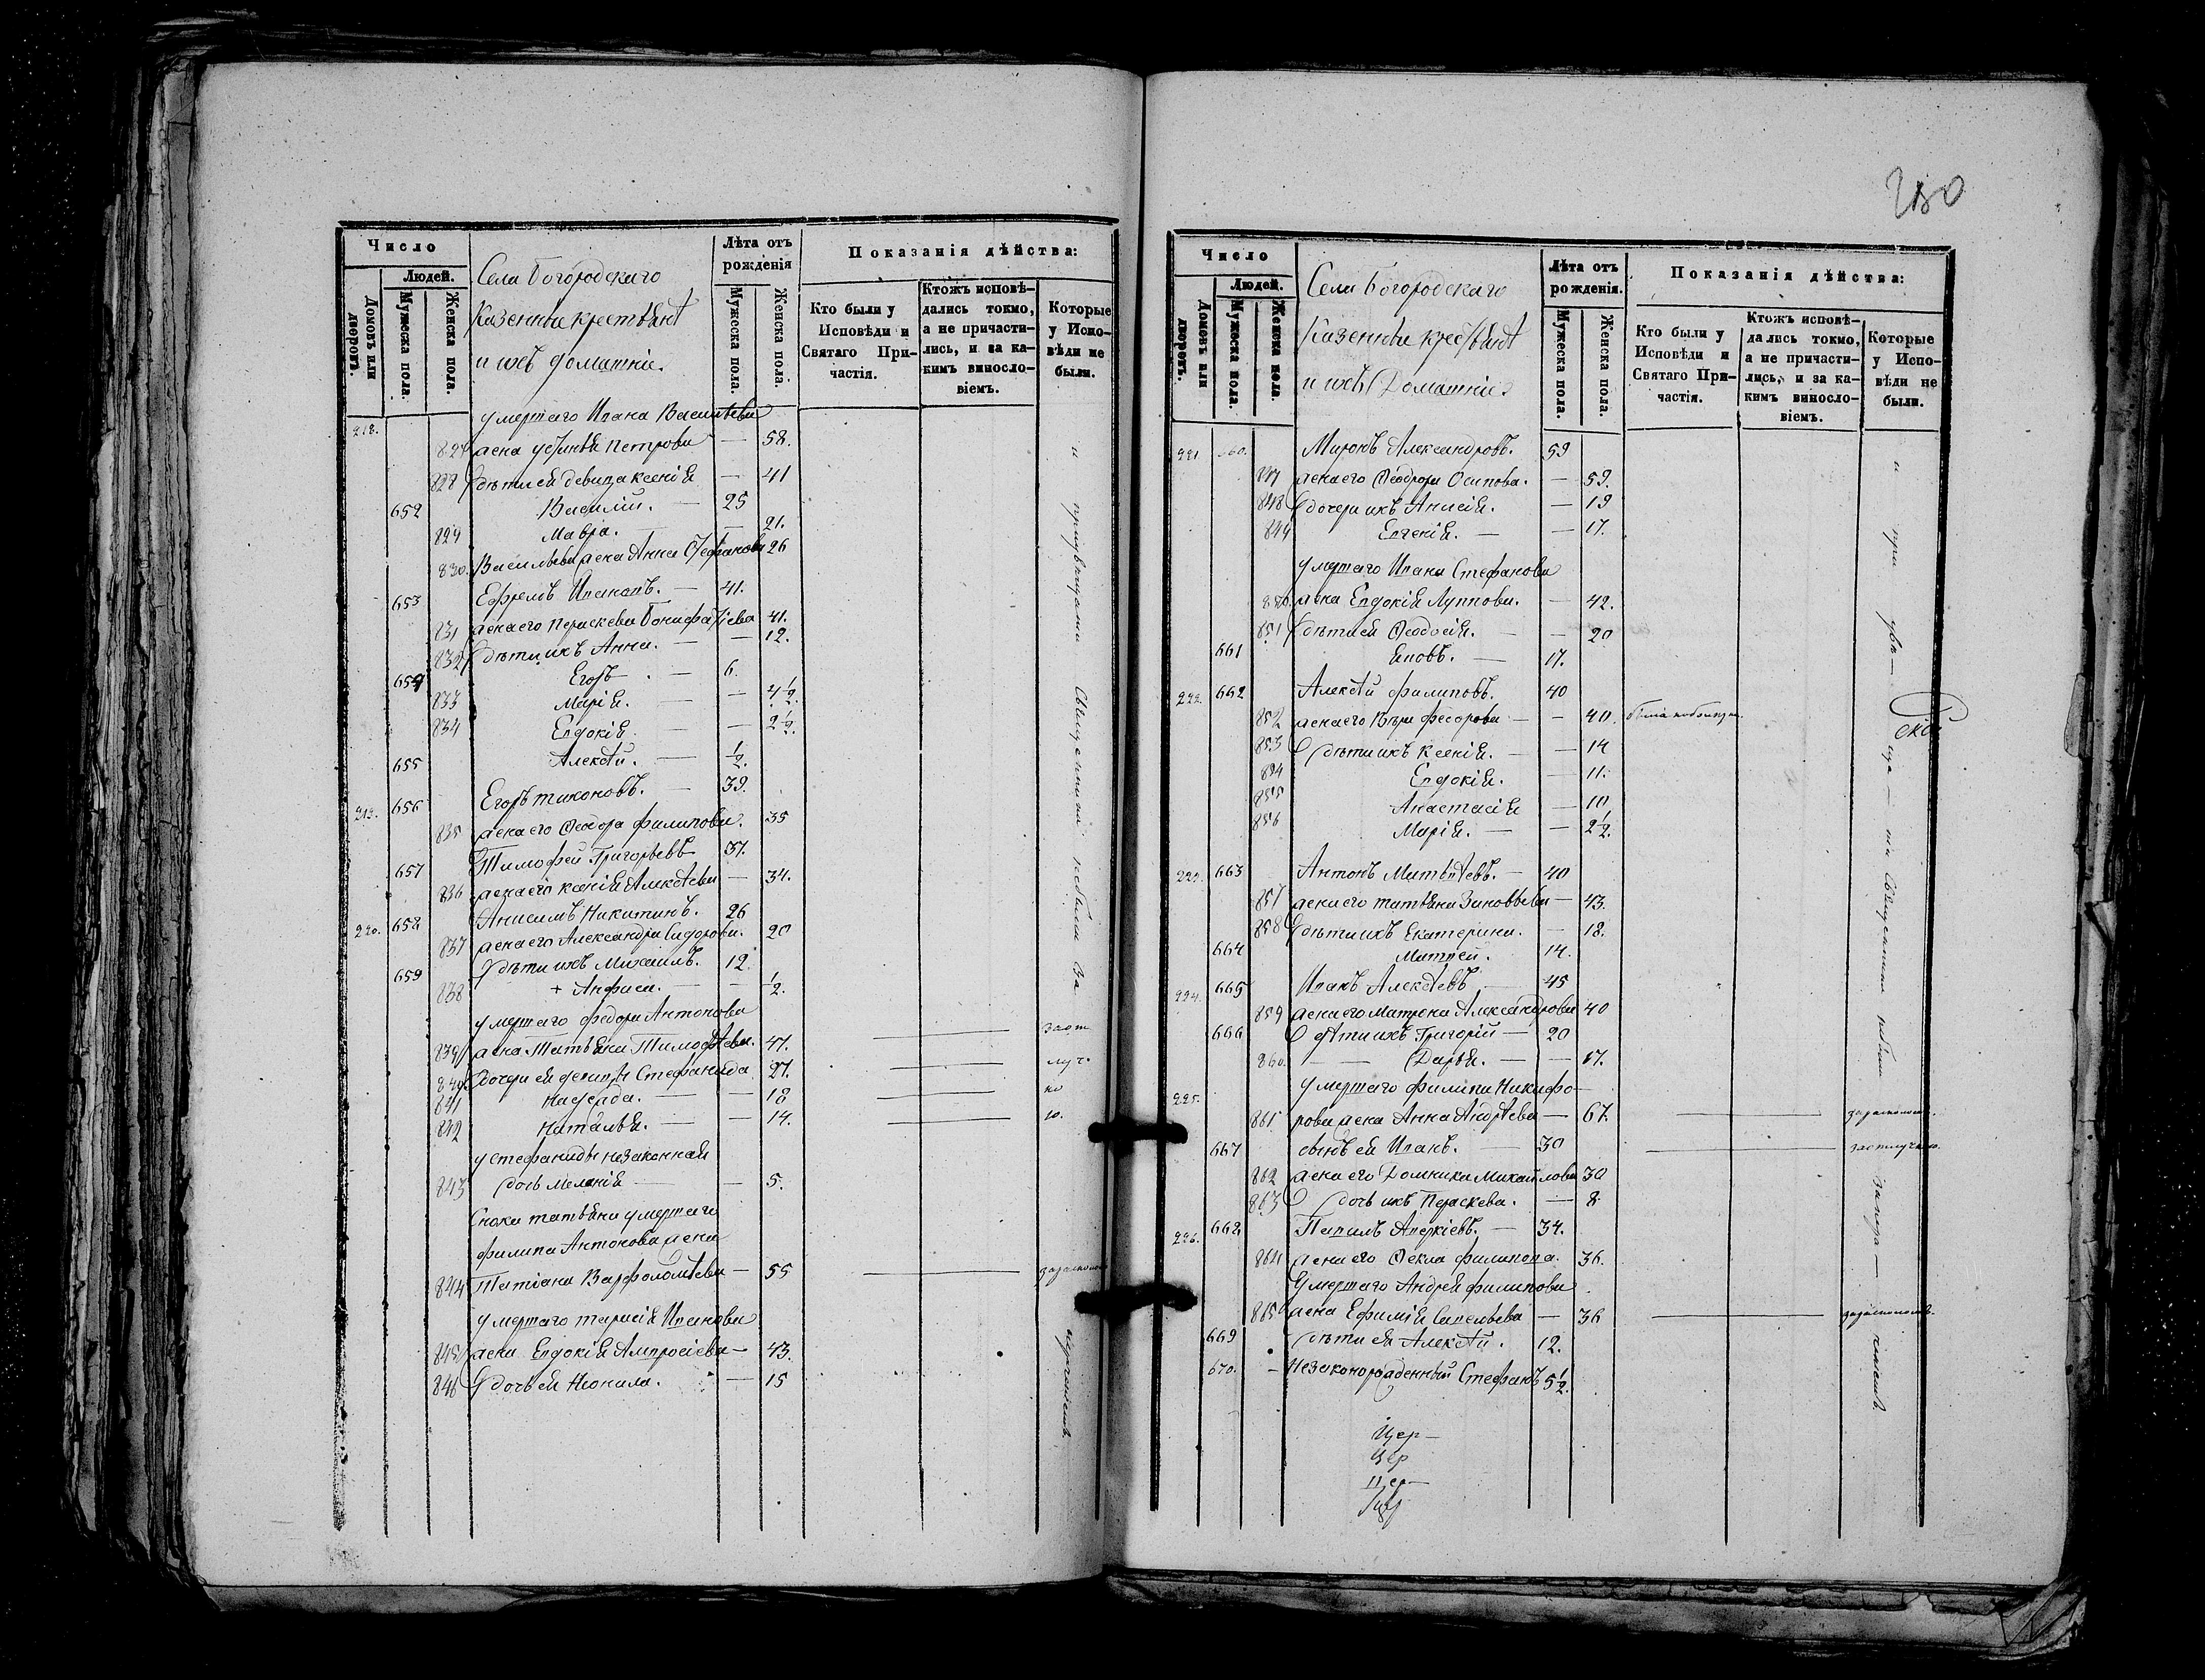 Число
Людей.
Домовъ или дворовъ.
Мужеска пола.
Женска пола.
Села Богородскаго
Казенные крестьяне
и ихъ домашніе.
Лѣта отъ рожденія
Мужеска пола.
Женска пола.
Показанія дѣйства:
Кто были у Исповѣди и Святаго Причастія.
Ктожъ исповѣдались токмо, а не причастились, и за какимъ винословіемъ.
Которые у Исповѣди не были.
218. умершаго Ивана Васильева
827 жена Устинья Петрова — 58.
828 дѣти ея девица Ксенія — 41
652 Василій. — 25
829 Мавра. — 21.
830. Васильева жена Анна Стефанова 26
653 Ефремъ Ивановъ. — 41.
831 жена его Параскева Бонифатіева 41.
832 дѣти ихъ Анна. — 12.
654 Егоръ — 6.
833 Марія. — 4 1/2.
834 Евдокія — 2 1/2.
655 Алексѣй. — 1/2.
219. 656 Егоръ Тихоновъ. — 39.
835 жена его Ѳеодора Филипова. 35
657 Тимофей Григорьевъ 37.
836 жена его Ксенія Алексѣева — 34.
220. 658 Анисимъ Никитинъ. 26
837 жена его Александра Сидорова. 20
659 дѣти ихъ Михаилъ. 12.
838 + Анфиса. — 1/2.
умершаго Федора Антонова
839 жена Татьяна Тимофѣева. 47.
840 дочери ея девицы Стефанида 27.
841 Надежда. — 18
842 Наталья. — 14.
у Стефаниды незаконная
843 дочь Меланія — 5.
Сноха Татьяны умершаго
Филипа Антонова жена
844 Татіана Варфоломѣева — 55
умершаго Тарасія Иванова
845 жена Евдокія Амвросіева — 43.
846 дочь ея Неонила. — 15
250
Число
Людей.
Домовъ или дворовъ.
Мужеска пола.
Женска пола.
Села Богородскаго
Казенные крестьяне
и ихъ Домашніе
Лѣта отъ рожденія.
Мужеска пола.
Женска пола.
Показанія дѣйства:
Кто были у Исповѣди и Святаго Причастія.
Ктожъ исповѣдались токмо, а не причастились, и за какимъ винословіемъ.
Которые у Исповѣди не были.
221 660. Миронъ Александровъ. 59
847 жена его Ѳеодора Осипова. — 59.
848 дочери ихъ Анисія. — 19
849 Евгенія. — 17.
умершаго Ивана Стефанова
850. жена Евдокія Луппова. — 42.
851 дѣти ея Ѳеодосія. — 20
661 Яковъ. — 17.
222. 662 Алексѣй Филиповъ. 40
852 жена его Вѣра Федорова — 40.
853 дѣти ихъ Ксенія. — 14
854 Евдокія. 11.
855 Анастасія — 10
856 Марія. — 2 1/2.
223. 663 Антонъ Матвѣевъ. — 40
857 жена его Татьяна Зиновьева — 43.
858 дѣти ихъ Екатерина. — 18.
664 Матвей. 14.
224. 665 Иванъ Алексѣевъ — 45
859 жена его Матрона Александрова 40
666 дѣти ихъ Григорій — 20
860. — Дарья. — 17.
225. умершаго Филипа Никифо-
861 рова жена Анна Андрѣева — 67.
667 сынъ ея Иванъ. 30
862 жена его Домника Михайлова 30
863 дочь ихъ Параскева. — 8
226. 668 Павилъ Аверкіевъ. — 34.
864 жена его Ѳекла Филипова. 36.
Умершаго Андрея Филипова
865 жена Ефимія Савельева — 36
669 дѣти ея Алексѣй. 12.
670. — Незаконорожденный Стефанъ 5 1/2.